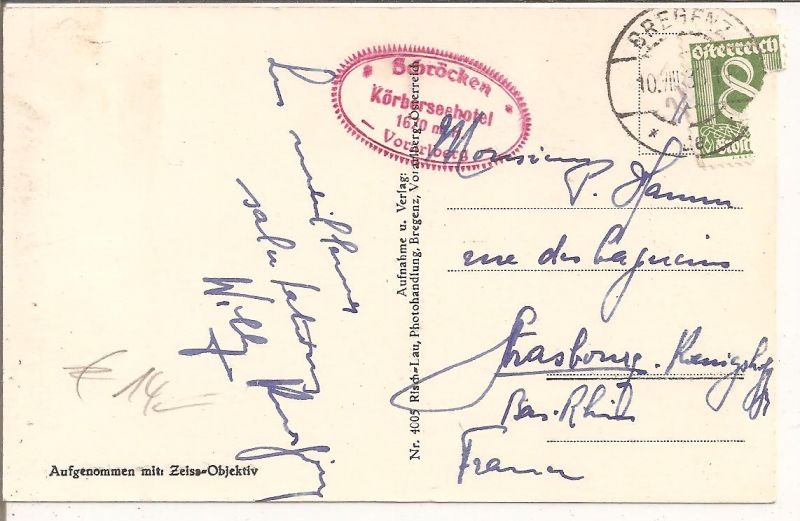 Les meilleures
salutations
Willy
€ 14,-
Aufgenommen mit: Zeiss-Objektiv
Nr. 4005 Risch-Lau, Photohandlung, Bregenz, Vorarlberg-Österreich
Aufnahme u. Verlag:
Schröcken
Körberseehotel
1670 m.
Vorarlberg
BREGENZ
10.VIII
Österreich
8
Monsieur
P. Hamm
rue des Capucins
Strasbourg-Koenigshoffen
Bas-Rhin
France